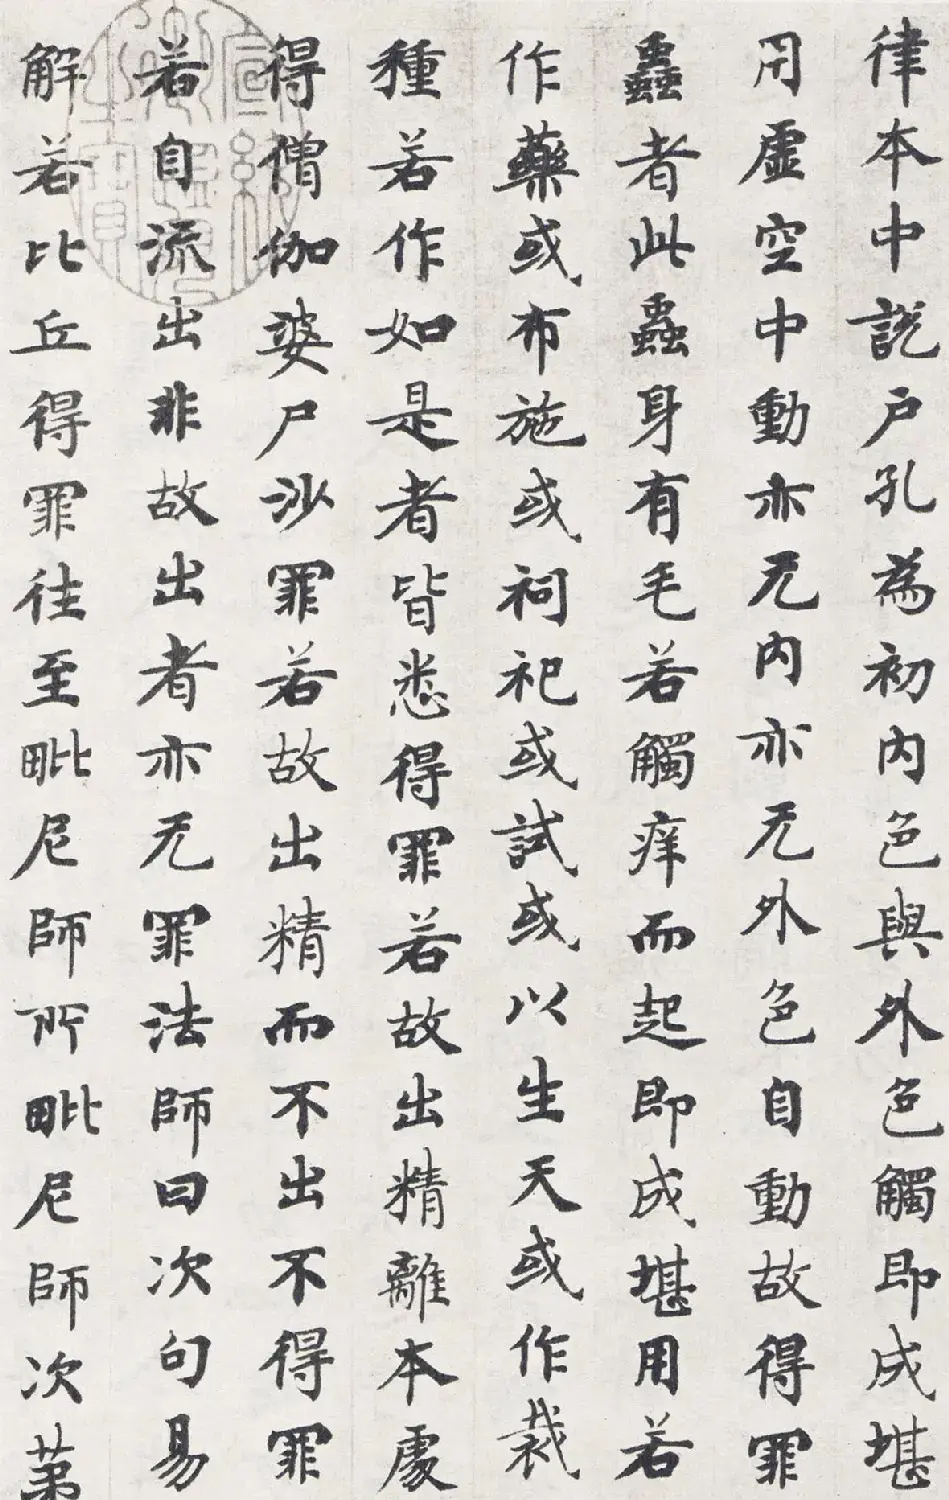 律本中說户孔為初內色與外色觸即成堪
用虛空中動亦无內亦无外色自動故得罪
蟲者此蟲身有毛若觸痒而起即成堪用若
作藥或布施或祠祀或試或以生天或作裁
種若作如是者皆悉得罪若故出精離本處
得僧伽婆尸沙罪若故出精而不出不得罪
若自流出非故出者亦无罪法師曰次句易
解若比丘得罪往至毗尼師所毗尼師次苐